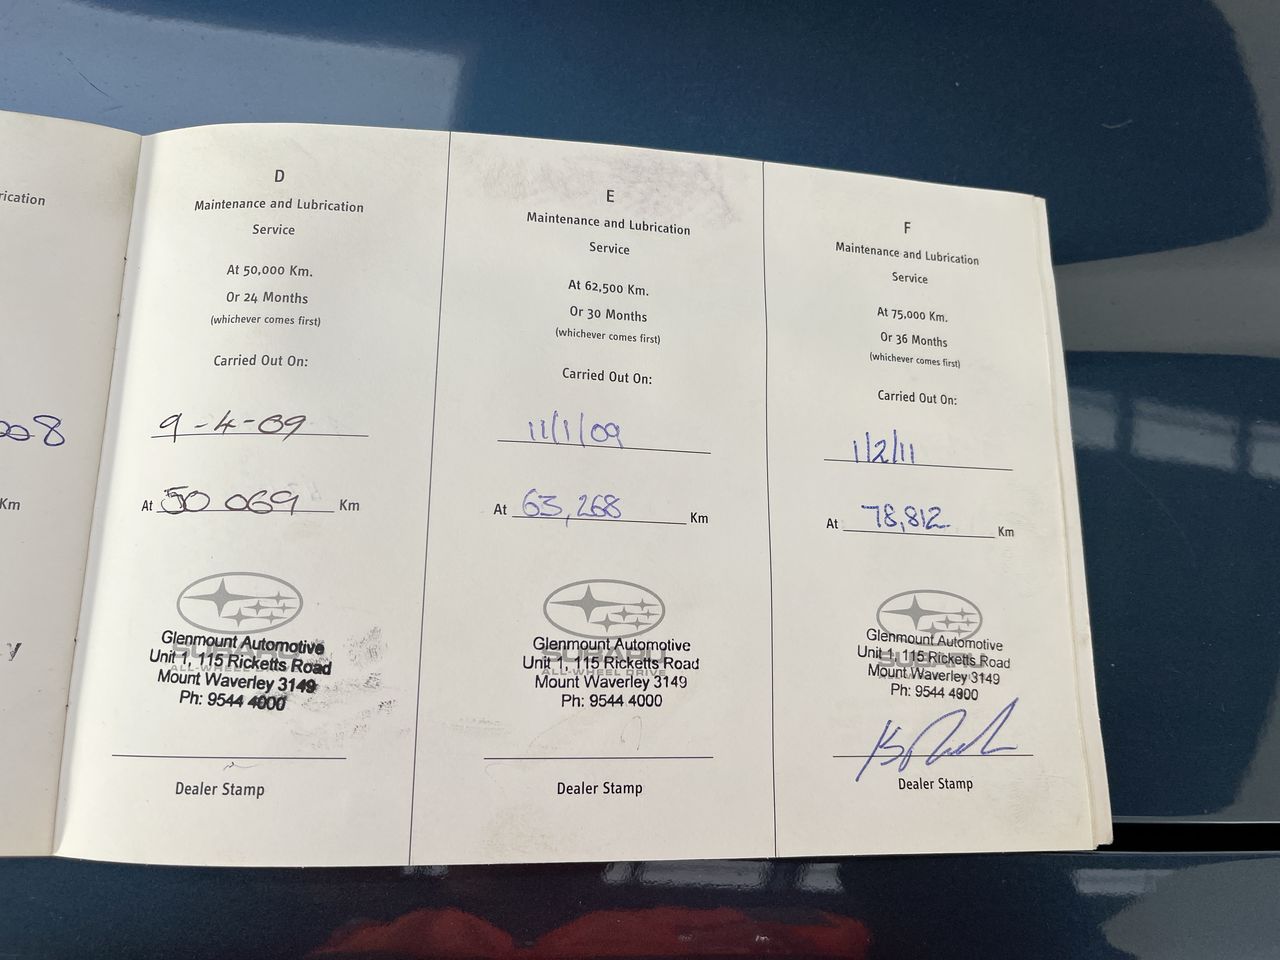 rication
008
Km
y
D
Maintenance and Lubrication
Service
At 50,000 Km.
Or 24 Months
(whichever comes first)
Carried Out On:
9-4-09
At 50 069 Km
SUBARU
ALL-WHEEL DRIVE
Glenmount Automotive
Unit 1, 115 Ricketts Road
Mount Waverley 3149
Ph: 9544 4000
Dealer Stamp
E
Maintenance and Lubrication
Service
At 62,500 Km.
Or 30 Months
(whichever comes first)
Carried Out On:
11/1/09
At 63,268 Km
SUBARU
ALL-WHEEL DRIVE
Glenmount Automotive
Unit 1, 115 Ricketts Road
Mount Waverley 3149
Ph: 9544 4000
Dealer Stamp
F
Maintenance and Lubrication
Service
At 75,000 Km.
Or 36 Months
(whichever comes first)
Carried Out On:
1/2/11
At 78,812 Km
SUBARU
Glenmount Automotive
Unit 1, 115 Ricketts Road
Mount Waverley 3149
Ph: 9544 4000
Dealer Stamp